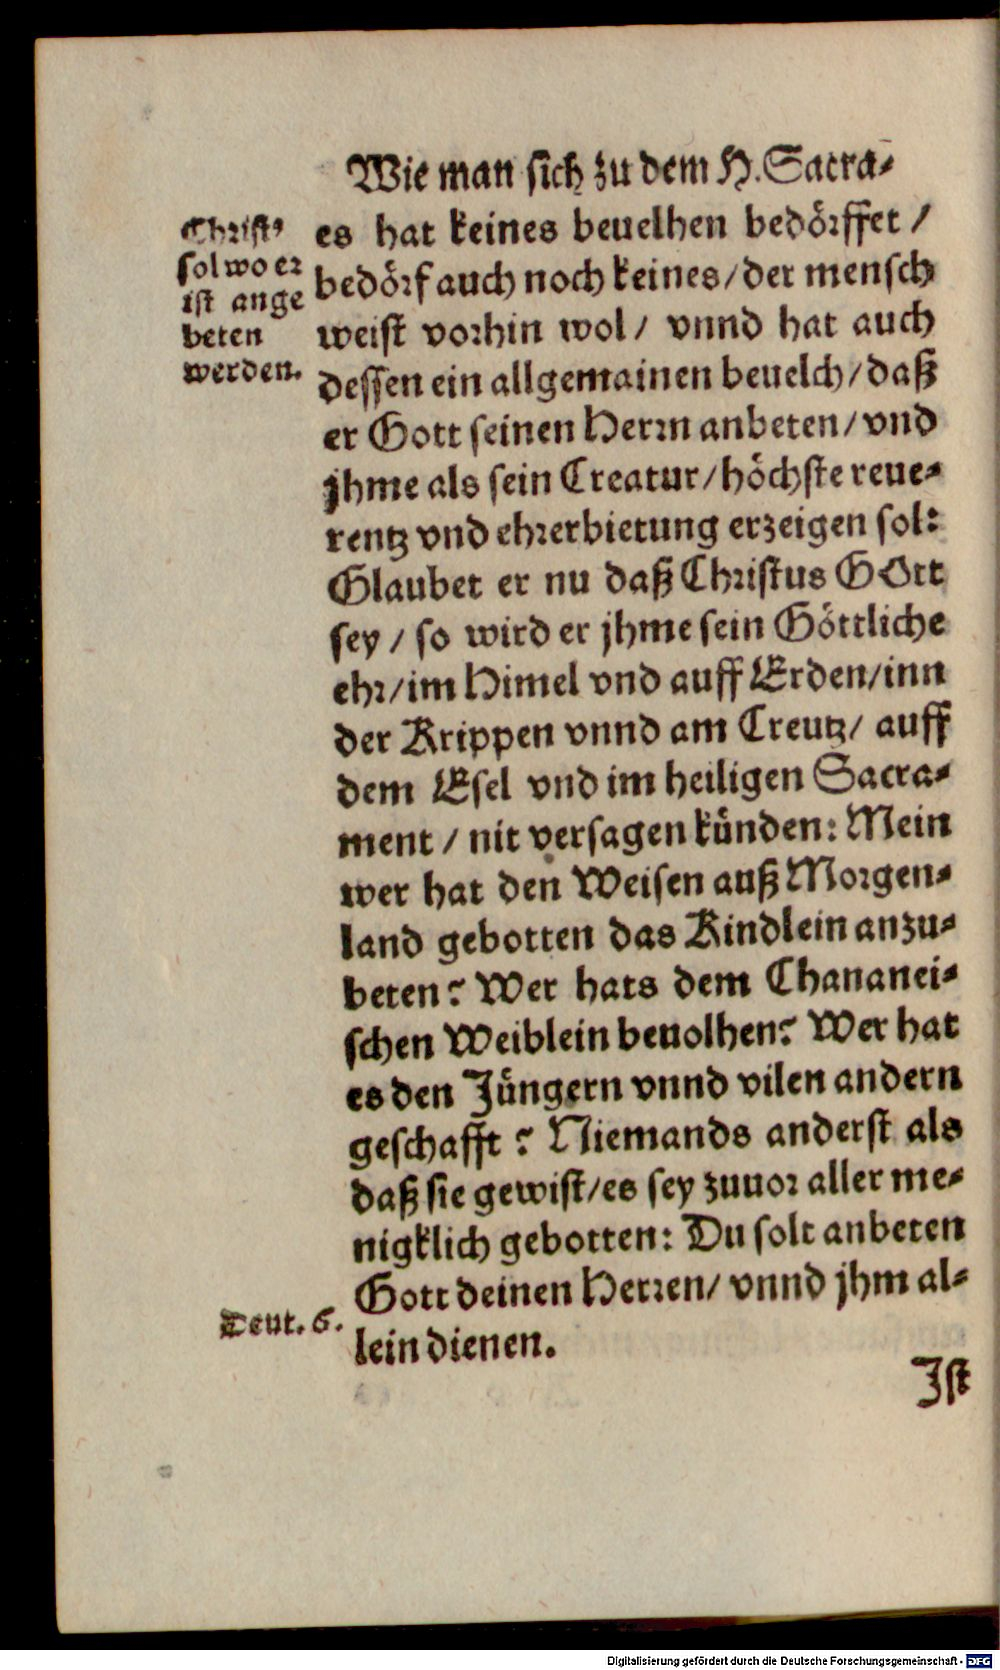 Wie man sich zu dem H. Sacra-
Christ⁹
sol wo er
ist ange
beten
werden.
es hat keines beuelhen bedörffet /
bedörf auch noch keines / der mensch
weist vorhin wol / vnnd hat auch
dessen ein allgemainen beuelch / daß
er Gott seinen Herrn anbeten / vnd
jhme als sein Creatur / höchste reue-
rentz vnd ehrerbietung erzeigen sol:
Glaubet er nu daß Christus GOtt
sey / so wird er jhme sein Göttliche
ehr / im Himel vnd auff Erden / inn
der Krippen vnnd am Creutz / auff
dem Esel vnd im heiligen Sacra-
ment / nit versagen künden: Mein
wer hat den Weisen auß Morgen-
land gebotten das Kindlein anzu-
beten? Wer hats dem Chananei-
schen Weiblein beuolhen? Wer hat
es den Jüngern vnnd vilen andern
geschafft? Niemands anderst als
daß sie gewist / es sey zuuor aller me-
nigklich gebotten: Du solt anbeten
Gott deinen Herren / vnnd jhm al-
lein dienen.
Deut. 6.
Ist
Digitalisierung gefördert durch die Deutsche Forschungsgemeinschaft - DFG